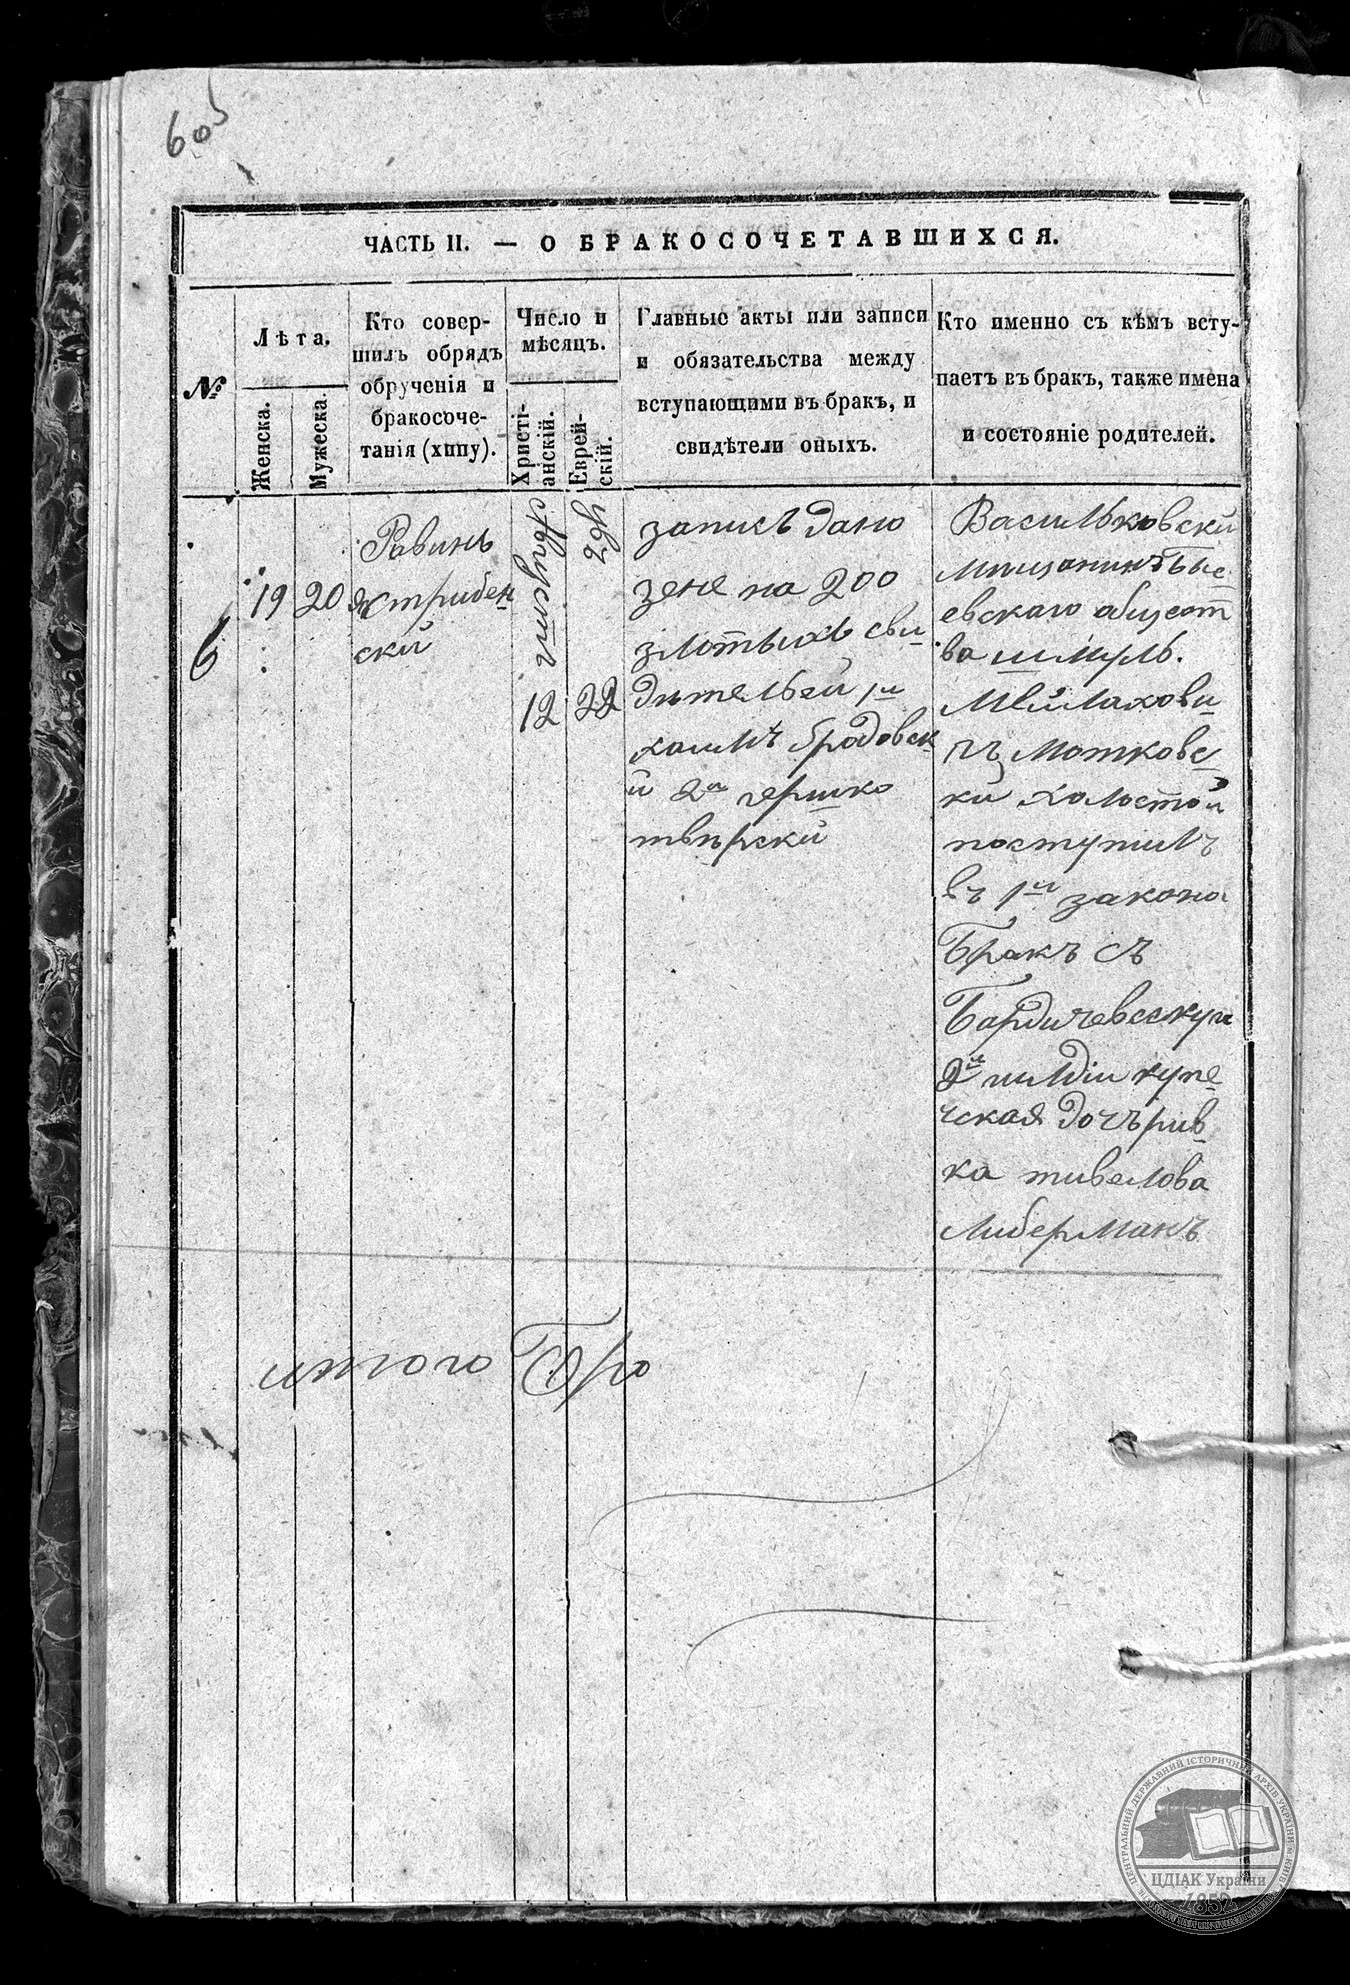 605
ЧАСТЬ II. — О БРАКОСОЧЕТАВШИХСЯ.
№
Лѣта.
Женска.
Мужеска.
Кто совер-
шилъ обрядъ
обрученія и
бракосоче-
танія (хипу).
Число и
мѣсяцъ.
Христі-
анскій.
Еврей-
скій.
Главные акты или записи
и обязательства между
вступающими въ бракъ, и
свидѣтели оныхъ.
Кто именно съ кѣмъ всту-
паетъ въ бракъ, также имена
и состояніе родителей.
6
19
20
Равинъ
ястрибен
ский
Августъ
12
22
запись дано
зене на 200
злотыхъ сви
дительей 1й
хаимъ бродовск
й 2й гершко
твѣрский
Васильковски
мищанинъ
евскаго общест
ва шмуль.
Мейлахови
чъ Мотковс
ки холостой
поступилъ
въ 1й закона
Бракъ съ
Бардичевсскуи
2й гилдіи купе
ческая дочъ рив
ка тивелова
Либерманъ
итого
ЦЕНТРАЛЬНИЙ ДЕРЖАВНИЙ ІСТОРИЧНИЙ АРХІВ УКРАЇНИ М. КИЇВ
ЦДІАК України
1852